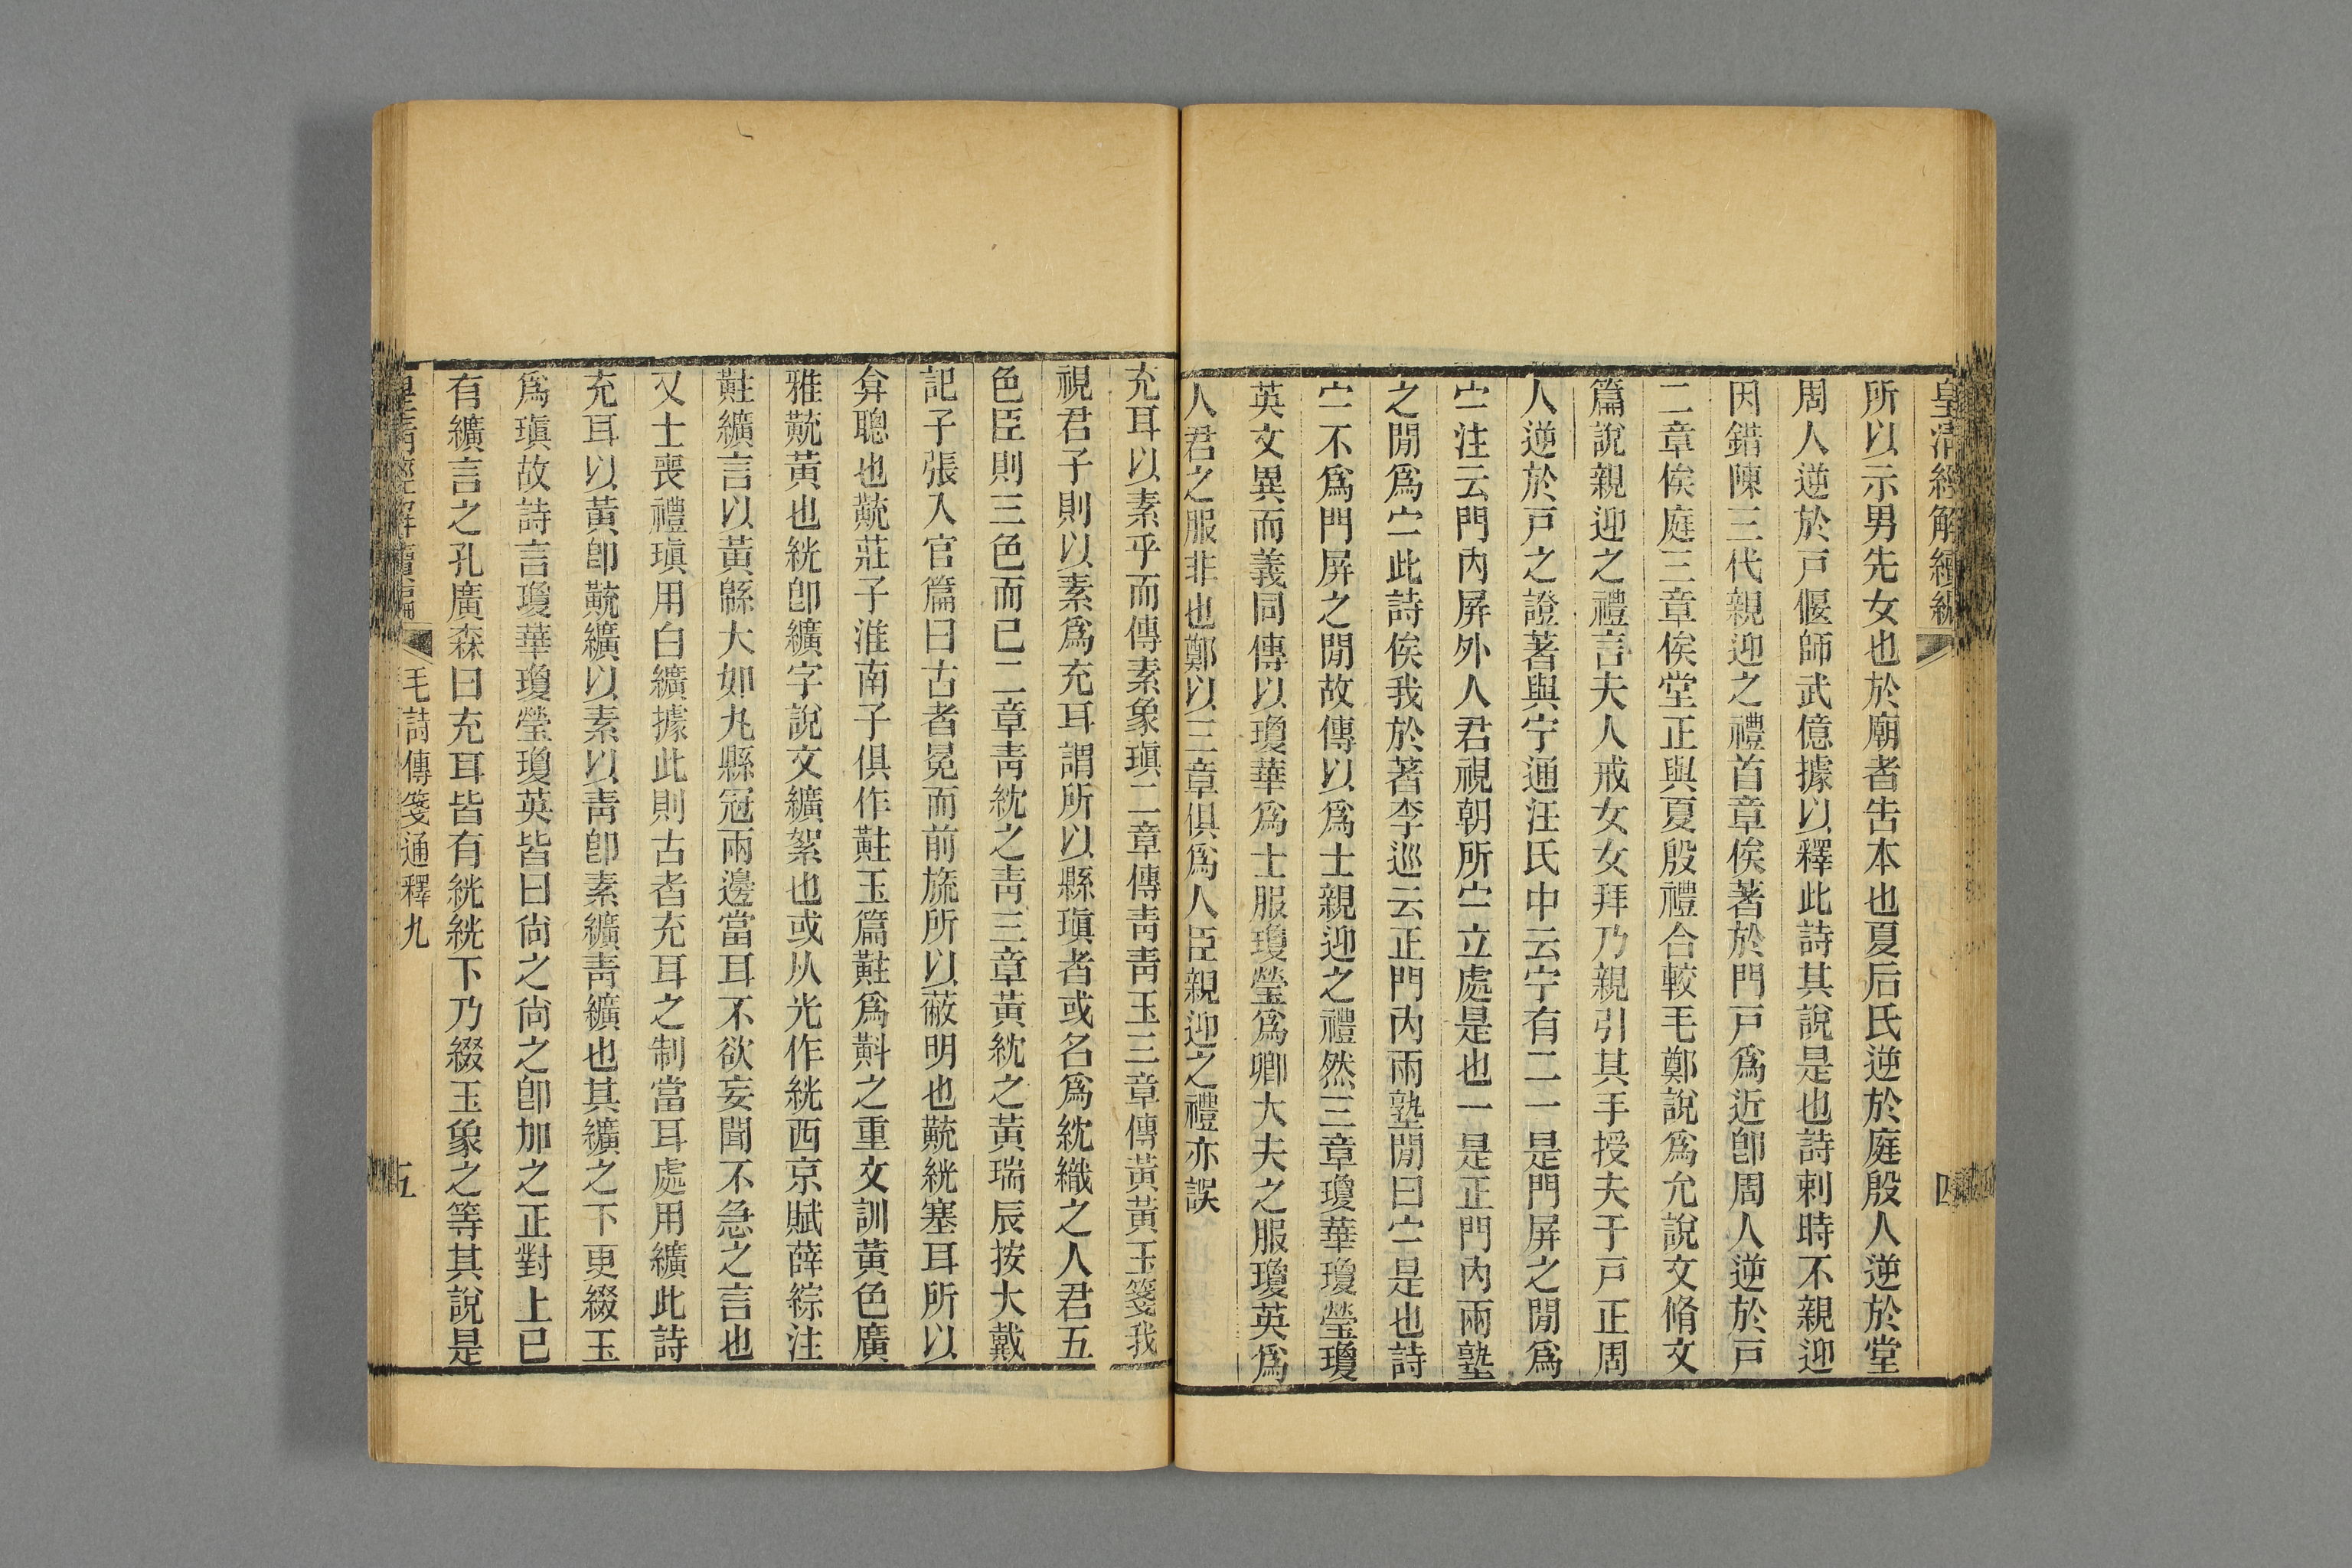 皇清經解續編
四
所以示男先女也於廟者告本也夏后氏逆於庭殷人逆於堂
周人逆於戸偃師武億據以釋此詩其說是也詩刺時不親迎
因錯陳三代親迎之禮首章俟著於門戸爲近卽周人逆於戸
二章俟庭三章俟堂正與夏殷禮合較毛鄭說爲允說文脩文
篇說親迎之禮言夫人戒女女拜乃親引其手授夫于戸正周
人逆於戸之證著與宁通汪氏中云宁有二一是門屏之閒爲
宁注云門內屏外人君視朝所宁立處是也一是正門內兩塾
之閒爲宁此詩俟我於著李巡云正門內兩塾閒曰宁是也詩
宁不爲門屏之閒故傳以爲士親迎之禮然三章瓊華瓊瑩瓊
英文異而義同傳以瓊華爲士服瓊瑩爲卿大夫之服瓊英爲
人君之服非也鄭以三章俱爲人臣親迎之禮亦誤
充耳以素乎而傳素象瑱二章傳靑靑玉三章傳黃黃玉箋我
視君子則以素爲充耳謂所以縣瑱者或名爲紞織之人君五
色臣則三色而已二章靑紞之靑三章黃紞之黃瑞辰按大戴
記子張入官篇曰古者冕而前旒所以蔽明也黈絖塞耳所以
弇聰也黈莊子淮南子俱作黈玉篇黈爲黊之重文訓黃色廣
雅黈黃也絖卽纊字說文纊絮也或从光作絖西京賦薛綜注
黈纊言以黃緜大如丸縣冠兩邊當耳不欲妄聞不急之言也
又士喪禮瑱用白纊據此則古者充耳之制當耳處用纊此詩
充耳以黃卽黈纊以素以靑卽素纊靑纊也其纊之下更綴玉
爲瑱故詩言瓊華瓊瑩瓊英皆曰尙之尙之卽加之正對上已
有纊言之孔廣森曰充耳皆有絖絖下乃綴玉象之等其說是
皇淸經解續編
毛詩傳箋通釋九
五